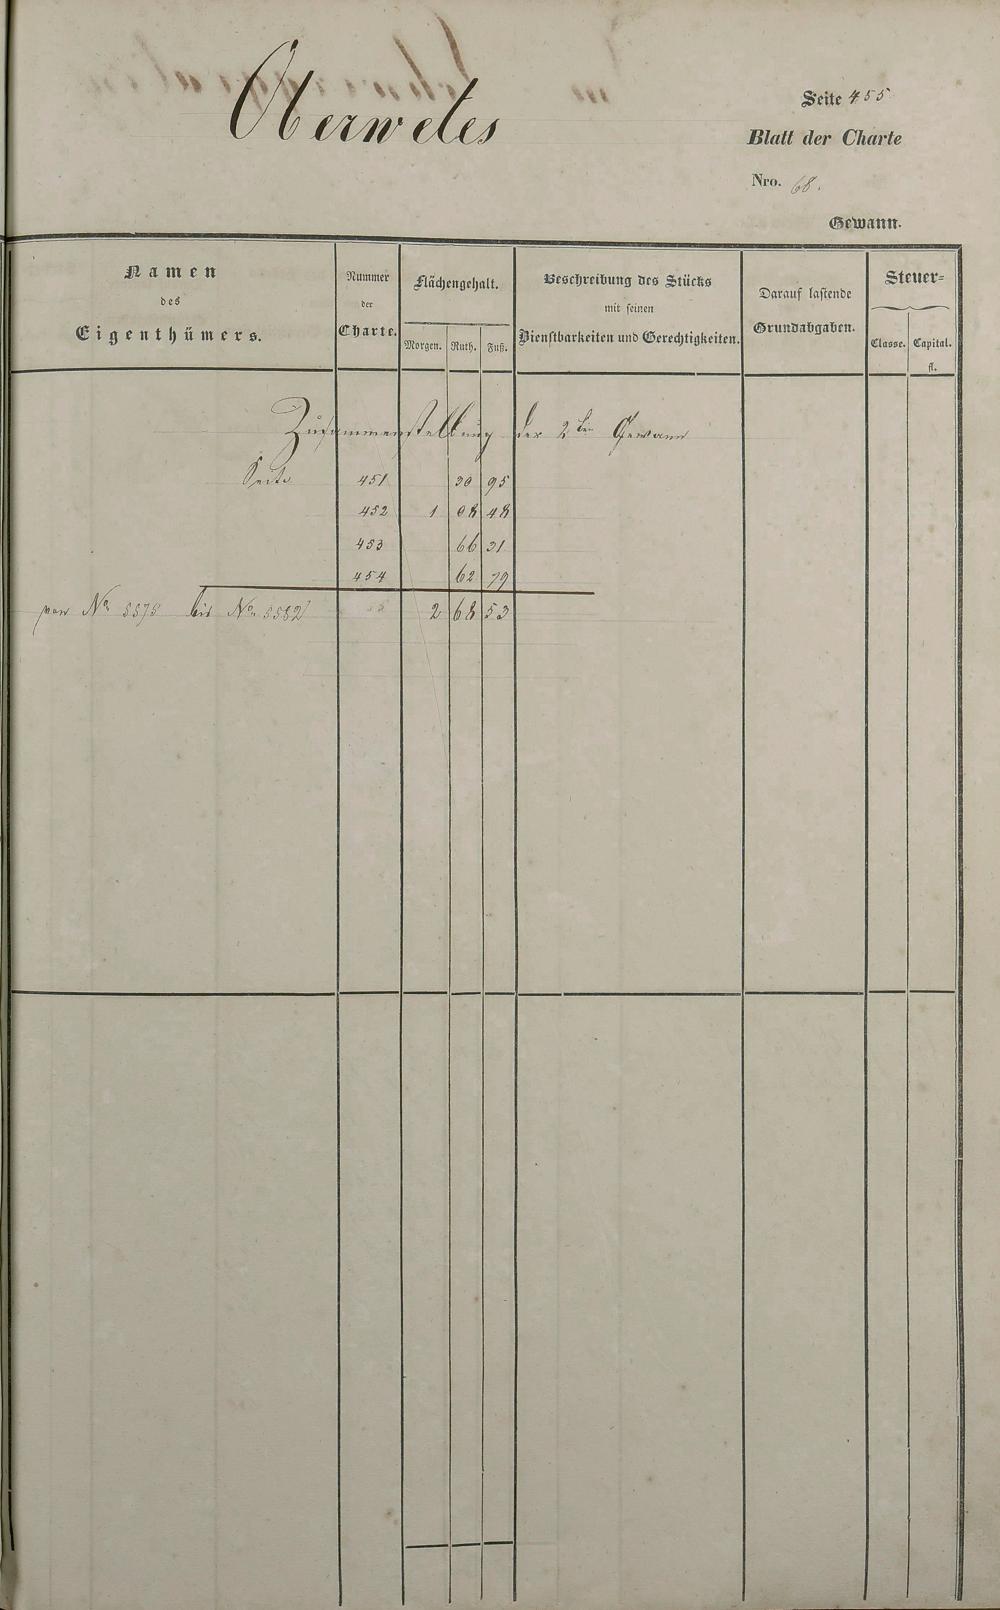 Oberwetes
Seite 455
Blatt der Charte
Nro. 68.
Gewann.
Namen
des
Eigenthümers.
Nummer
der
Charte.
Flächengehalt.
Morgen. Ruth. Fuß.
Beschreibung des Stücks
mit seinen
Dienstbarkeiten und Gerechtigkeiten.
Darauf lastende
Grundabgaben.
Steuer-
Classe. Capital.
fl.
Zusammenstellung der 2ten Gewann
Seite 451 30 95
452 1 08 48
453 66 31
454 62 79
von No. 5575 bis No. 5582 2 68 53